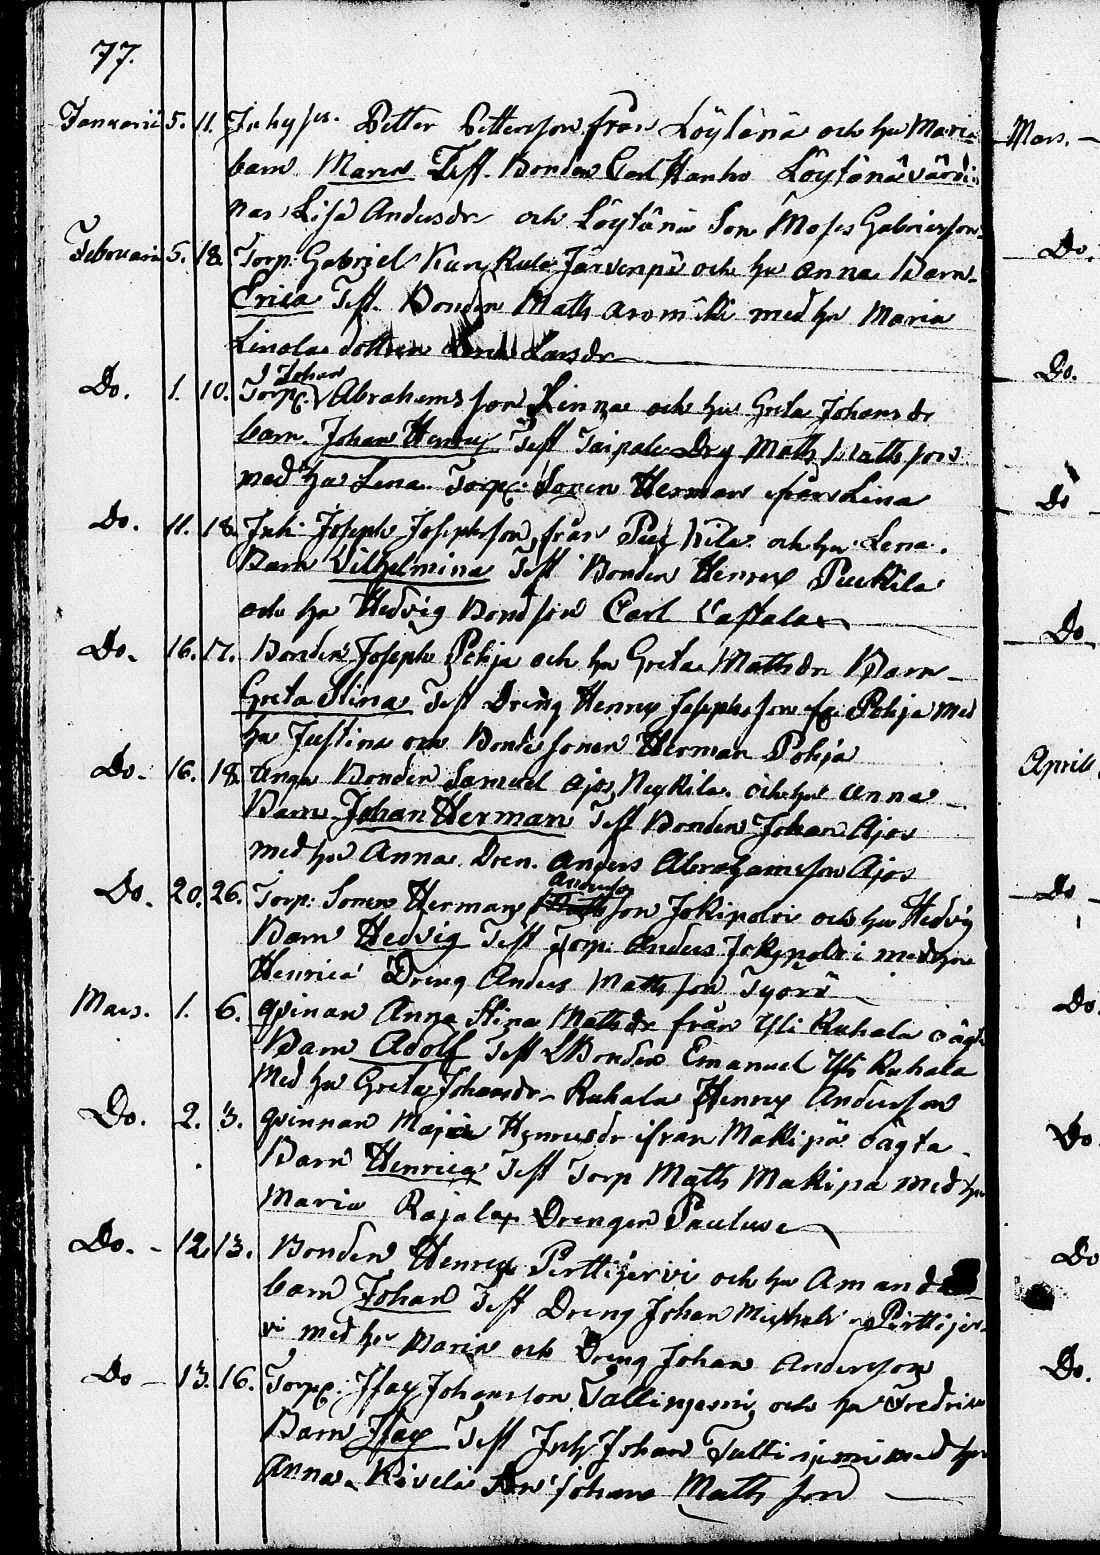 77.
Januarii 5. 11. Inhys. Petter Pettersson från Löytänä och hu Maria
barn Maria Test. Bonden Carl Hanho Löytänä värdin
nas Lisa Andersdr och Löytänä Son Moses Gabrielsson
Februarii 5. 18. Torp: Gabriel Järvenpä och hu Anna Barn
Erica Test. Bonden Mats aromäki med hu Maria
Linola dottren Larsdr
Do. 1. 10. Torp: Johan Abrahamsson Linna och hu Greta Johansdr
barn. Johan Henrey Test Taipale Drg Math Mattsson
med hu Lena Torp: Sonen Herman från Lina
Do. 11. 18. Inh: Joseph Josephsson från Puckila och hu Lena.
Barn Vilhelmina Test Bonden Henrey Puckila
och hu Hedvig Bondson Carl
Do. 16. 17. Bonden Joseph Pohja och hu Greta Mathsdr Barn
Greta Stina Test Dreng Henrey Josephsson fr. Pohja med
hu Justina och Bondesonen Herman Pohja
Do. 16. 18. unga Bonden Samuel Ajos Neykila och hu anna
Barn Johan Herman Test Bonden Johan Ajos
med hu Anna Dren. Anders Abrahamsson Ajos
Do. 20. 26. Torp: Sonen Herman Andersson Jokipolvi och hu Hedvig
Barn Hedvig Test Torp: Anders Jokipolvi med hu
Henrica Dreng Anders Mattsson Tyorä
Mars. 1. 6. qvinan Anna Stina Mathsdr från Yli Ruhala oägta
Barn Adolf Test Bonden Emanuel Yli Ruhala
med hu Greta Johansdr Ruhala Henrey Andersson
Do. 2. 3. qvinnan Maja Henricsdr ifrån Mäkipä oägta
Barn Henrica Test Torp Maths Makipä med hu
Maria Rajala Drengen Paulus
Do. 12. 13. Bonden Henrey Perttijervi och hu Amanda
barn Johan Test Dreng Johan Pirttijer-
vi med hu Maria och Dreng Johan Andersson
Do 13. 16. Torp: Isac Johansson Tallinjemi och hu Fredrica
Barn Isac Test Inh Johan med hu
Anna. Kivelä Johan Mathsson
Mars.
Do.
Do.
Do
Do
April
Do
Do.
Do
Do
Do.